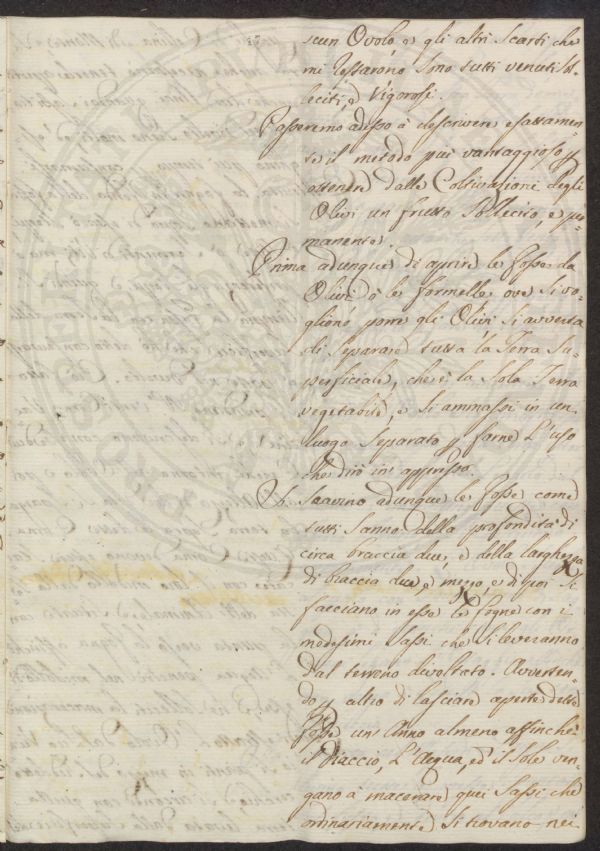 scun Ovolo, e gli altri scarti che
mi restarono sono tutti venuti sol-
leciti, e Vigorosi.
Passeremo adesso à descrivere esattamen-
te il metodo più vantaggioso p
ottenere dalle Coltivazioni degli
Olivi un frutto sollecito, e per-
manente.
Prima adunque di aprire le fosse da
Olivi ò le formelle ove si vo-
gliono porre gli Olivi si avverta
di separare tutta la Terra Su-
perficiale, che è la sola Terra
vegetabile, e si ammassi in un
luogo separato p farne l'uso
che dirò in appresso.
Si scavino adunque le fosse come
tutti sanno della profondità di
circa braccia due, e della larghezza
di braccia due, e mezzo, e di poi si
facciano in esse le fogne con i
medesimi sassi che si leveranno
dal terreno divoltato. Avverten-
do p altro di lasciare aperte dette
fosse un Anno almeno affinchè
il Diaccio, l'Acqua, ed il Sole ven-
gano à macerare quei sassi che
ordinariamente si trovano nei